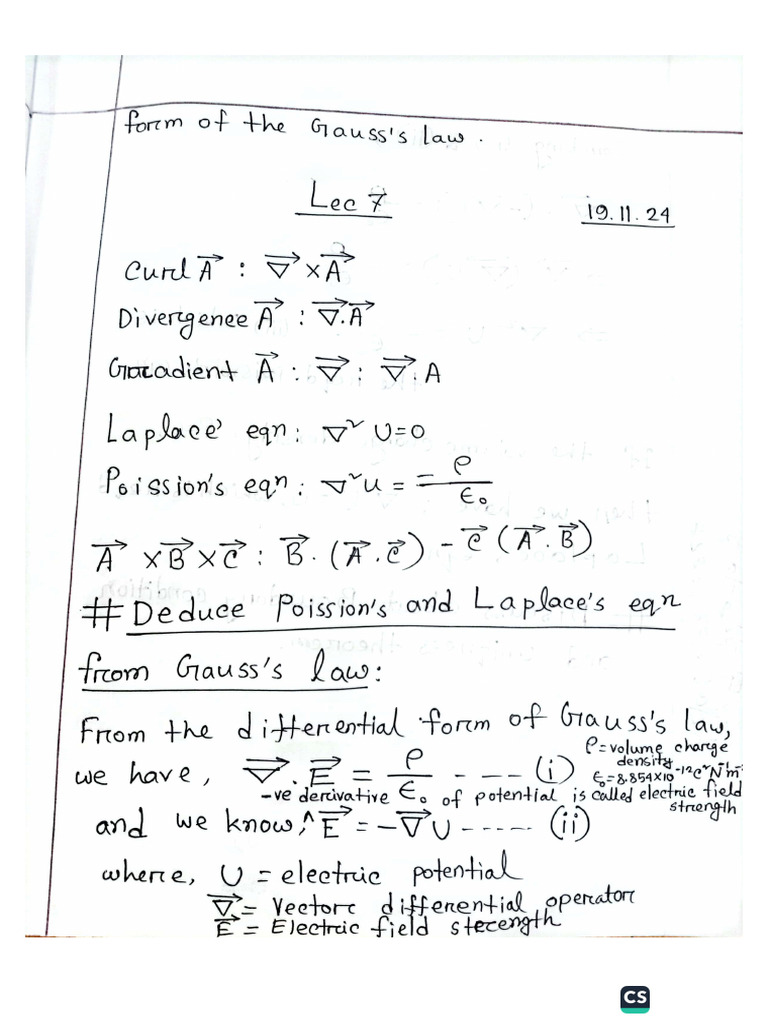 form of the Gauss's law.
Lec 7
19.11.24
Curl A⃗ : ∇⃗ × A⃗
Divergence A⃗ : ∇⃗.A⃗
Gradient A⃗ : ∇⃗ : ∇⃗.A
Laplace' eqn : ∇² U=0
Poission's eqn : ∇²u = - ρ/ϵ₀
A⃗ × B⃗ × C⃗ : B⃗. (A⃗.C⃗) - C⃗ (A⃗.B⃗)
# Deduce Poission's and Laplace's eqn
from Gauss's law:
From the differential form of Gauss's law,
ρ = volume charge
density
we have, ∇⃗.E⃗ = ρ/ϵ₀ - - - - (i)
ϵ₀ = 8.854×10⁻¹² C² N⁻¹ m⁻
-ve derivative of potential is called electric field
strength
and we know,^ E⃗ = -∇⃗U ----- (ii)
where, U = electric potential
∇⃗ = Vector differential operator
E⃗ = Electric field strength
CS